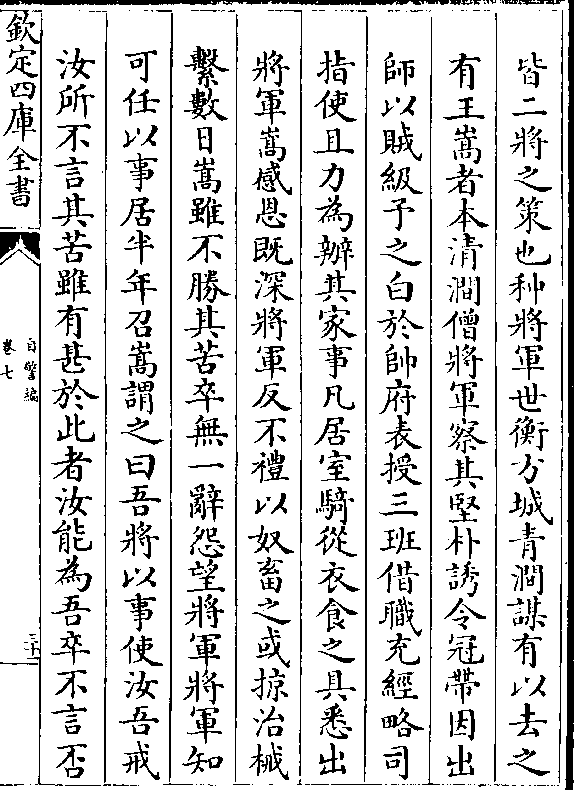 皆二將之策也种將軍世衡方城青澗謀有以去之
有王嵩者本清澗僧將軍察其堅朴誘令冠帶因出
師以賊級予之白於帥府表授三班借職充經略司
指使且力為辦其家事凡居室騎從衣食之具悉出
將軍嵩感恩既深將軍反不禮以奴畜之或掠治械
繫數日嵩雖不勝其苦卒無一辭怨望將軍將軍知
可任以事居半年召嵩謂之曰吾將以事使汝吾戒
汝所不言其苦雖有甚於此者汝能為吾卒不言否
欽定四庫全書
自警編
卷七
三十